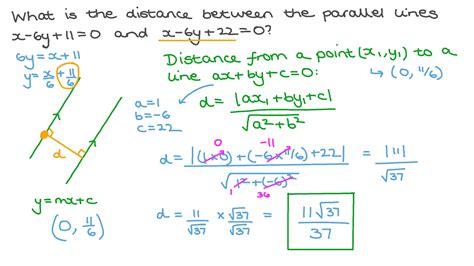 What is the distance between the parallel lines
x-6y+11=0 and x-6y+22=0?
6y=x+11
y=x/6+11/6
Distance from a point (x₁,y₁) to a
line ax+by+c=0:
→ (0, 11/6)
a=1
b=-6
c=22
d = |ax₁+by₁+c| / √(a²+b²)
d
0
-11
d = |(1×0)+(-6×11/6)+22| / √(1²+(-6)²) = |11| / √37
1
36
y=mx+c
(0, 11/6)
d = 11/√37 × √37/√37 = 11√37/37